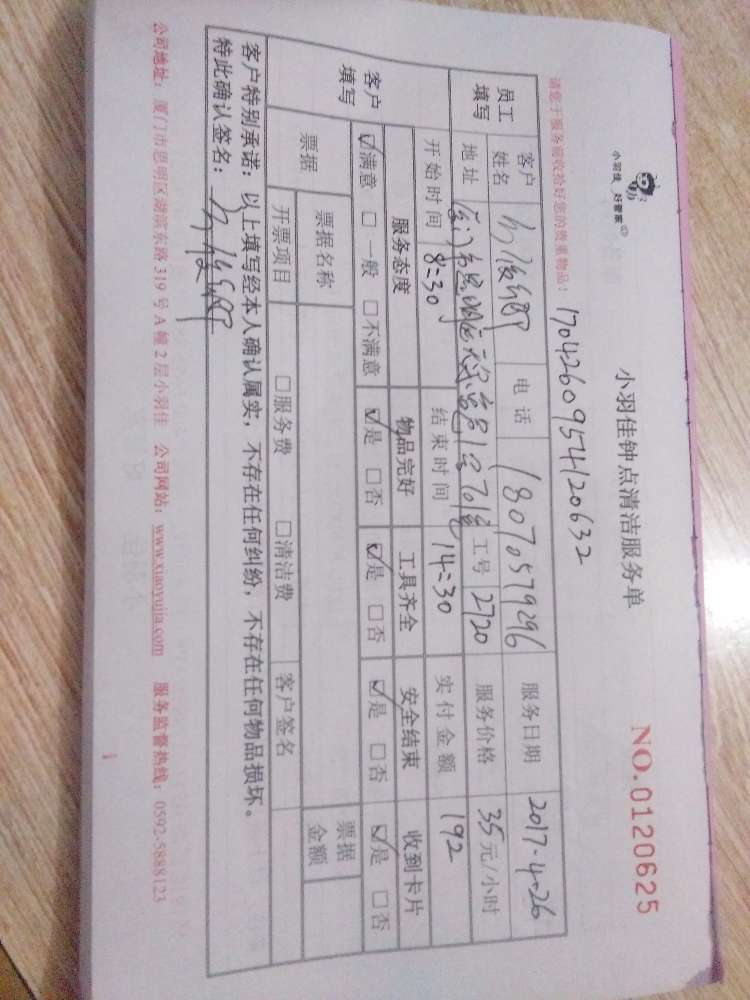 小羽佳 好管家
小羽佳钟点清洁服务单
NO.0120625
请您于服务前收拾好您的贵重物品！
1704260954120632
员工填写 客户姓名 电话 18070579296 服务日期 2017-4-26
地址 工号 2720 服务价格 35元/小时
开始时间 8:30 结束时间 14:30 实付金额 192
客户填写 服务态度 物品完好 工具齐全 安全结束 收到卡片
☑满意 □一般 □不满意 ☑是 □否 ☑是 □否 ☑是 □否 ☑是 □否
票据 票据名称 票据金额
开票项目 □服务费 □清洁费 客户签名
客户特别承诺：以上填写经本人确认属实，不存在任何纠纷，不存在任何物品损坏。
特此确认签名：
公司地址：厦门市思明区湖滨东路319号A幢2层小羽佳 公司网站：www.xiaoyujia.com 服务监督热线：0592-5888123